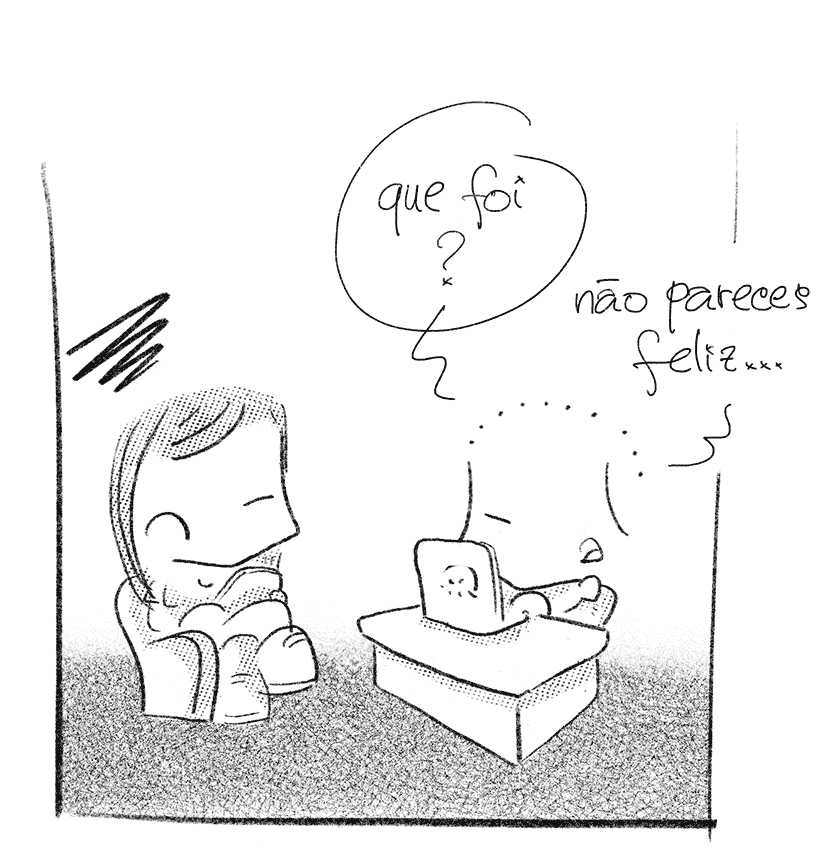 que foi
?
não pareces
feliz...